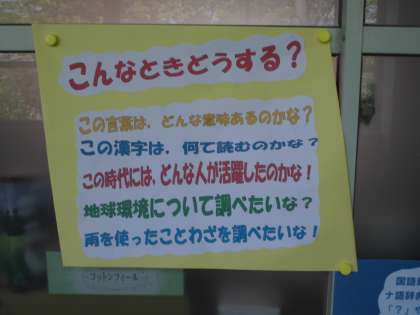 こんなときどうする？
この言葉は、どんな意味あるのかな？
この漢字は、何て読むのかな？
この時代には、どんな人が活躍したのかな！
地球環境について調べたいな？
雨を使ったことわざを調べたいな！
コットンフィール
国語
ナ語辞
「？」